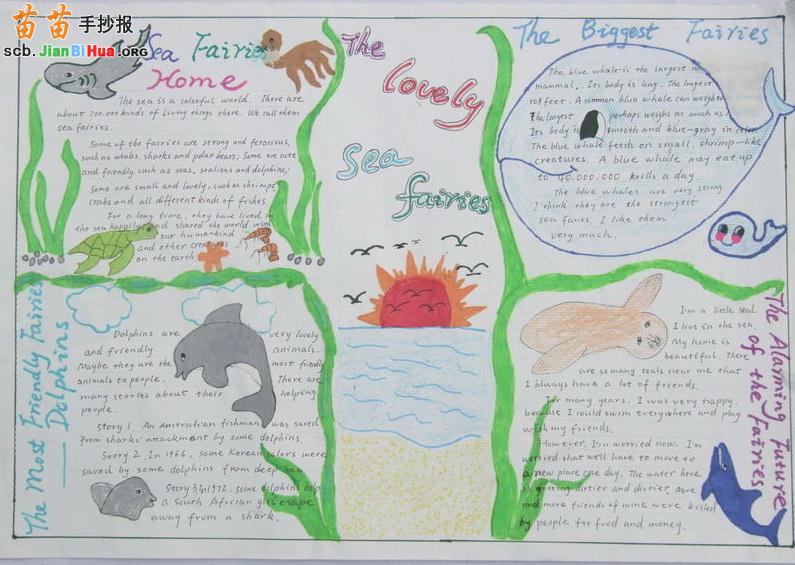 苗苗手抄报
scb.JianBiHua.ORG
Sea Fairies
Home
The sea is a colorful world. There are
about 200.000 kinds of living things there. We call them
sea fairies.
Some of the fairies are strong and ferocious,
such as whales, sharks and polar bears. Some are cute
and friendly, such as seas, sealions and dolphins;
Some are small and lovely, such as shrimps,
crabs and all different kinds of fishes.
For a long time, they have lived in
the sea happily and shared the world with
our humankind
and other creatures
on the earth
The
lovely
sea
fairies
The Biggest Fairies
The blue whale is the largest
mammal. Its body is long. The longest
108 feet. A common blue whale can weight
The largest perhaps weighs as much as
Its body is smooth and blue-gray in color.
The blue whale feeds on small, shrimp-like
creatures. A blue whale may eat up
to 40.000.000 krills a day.
The blue whales are very strong.
I think they are the strongest
sea faries. I like them
very much.
The Most Friendly Fairies
—— Dolphins
Dolphins are very lovely
and friendly animals.
Maybe they are the most friendly
animals to people. There are
many stories about their helping
people.
Story 1. An Australian fishman was saved
from sharks' attackment by some dolphins.
Story 2. In 1966, some Korean sailors were
saved by some dolphins from deep sea.
Story 3 In 1972. some dolphins help
a South African girl escape
away from a shark.
The Alarming Future
of the Fairies
I'm a little seal.
I live in the sea.
My home is
beautiful. There
are so many seals near me that
I always have a lot of friends.
For many years, I was very happy,
because I could swim everywhere and play
with my friends.
However, I'm worried now. I'm
worried that we'll have to move to
a new place one day. The water here
is getting dirtier and dirtier. More
and more friends of mine were killed
by people for food and money.